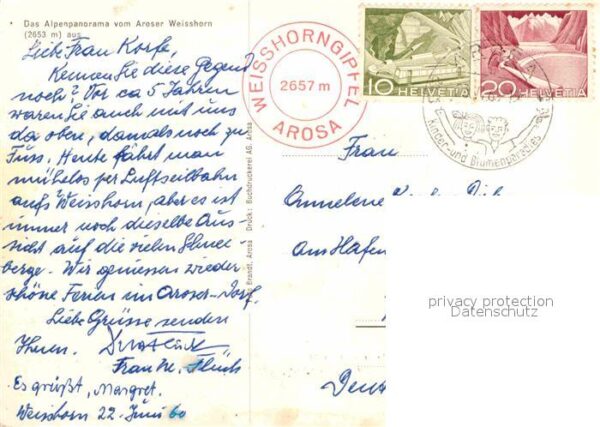 Das Alpenpanorama vom Aroser Weisshorn
(2653 m) aus
Liebe Frau Korfe,
Kennen Sie diese Gegend
noch? Vor ca 5 Jahren
waren Sie auch mit uns
da oben, damals noch zu
Fuss. Heute fährt man
mühelos per Luftseilbahn
aufs Weisshorn, aber es ist
immer noch dieselbe Aus-
sicht auf die vielen Schnee-
berge. Wir geniessen wieder
schöne Ferien im Aroser-Dorf.
Liebe Grüsse senden
Ihnen.
Frau
Es grüßt, Margret.
Weisshorn 22. Juni 60
Brandt, Arosa Druck: Buchdruckerei AG. Arosa
WEISSHORNGIPFEL
2657 m
AROSA
10 HELVETIA
20 HELVETIA
AROSA
Kinder- und Blumenparadies
Frau
Annelene
Am Hafen
privacy protection
Datenschutz